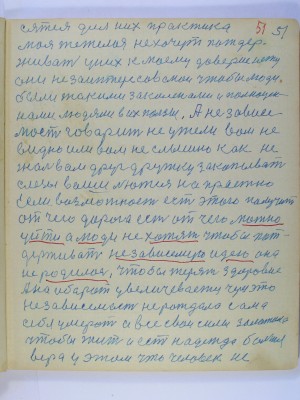 51 51
сятся для них практика
моя тяжелая не хочут поддер-
живать у них к моему доверия нету
они не заинтересованы чтобы люди
были такими закаленами
нами людями в их пользе, А не зависи-
мость говорит не ужели вам не
видно или вам не слышно как не
жал вам друг дружку закапывать
слезы ваши льются напрасно
Если возможность есть этого получить
от чего дорога есть от чего можно
уйти а люди не хотят чтобы под-
держивать независимую идею она
не родилась, чтобы терять здоровье
А на оборот увеличевать чуство
независемость не рождала сама
себя умерать а все свои силы
чтобы жить и есть надежда большая
вера у этом что человек не